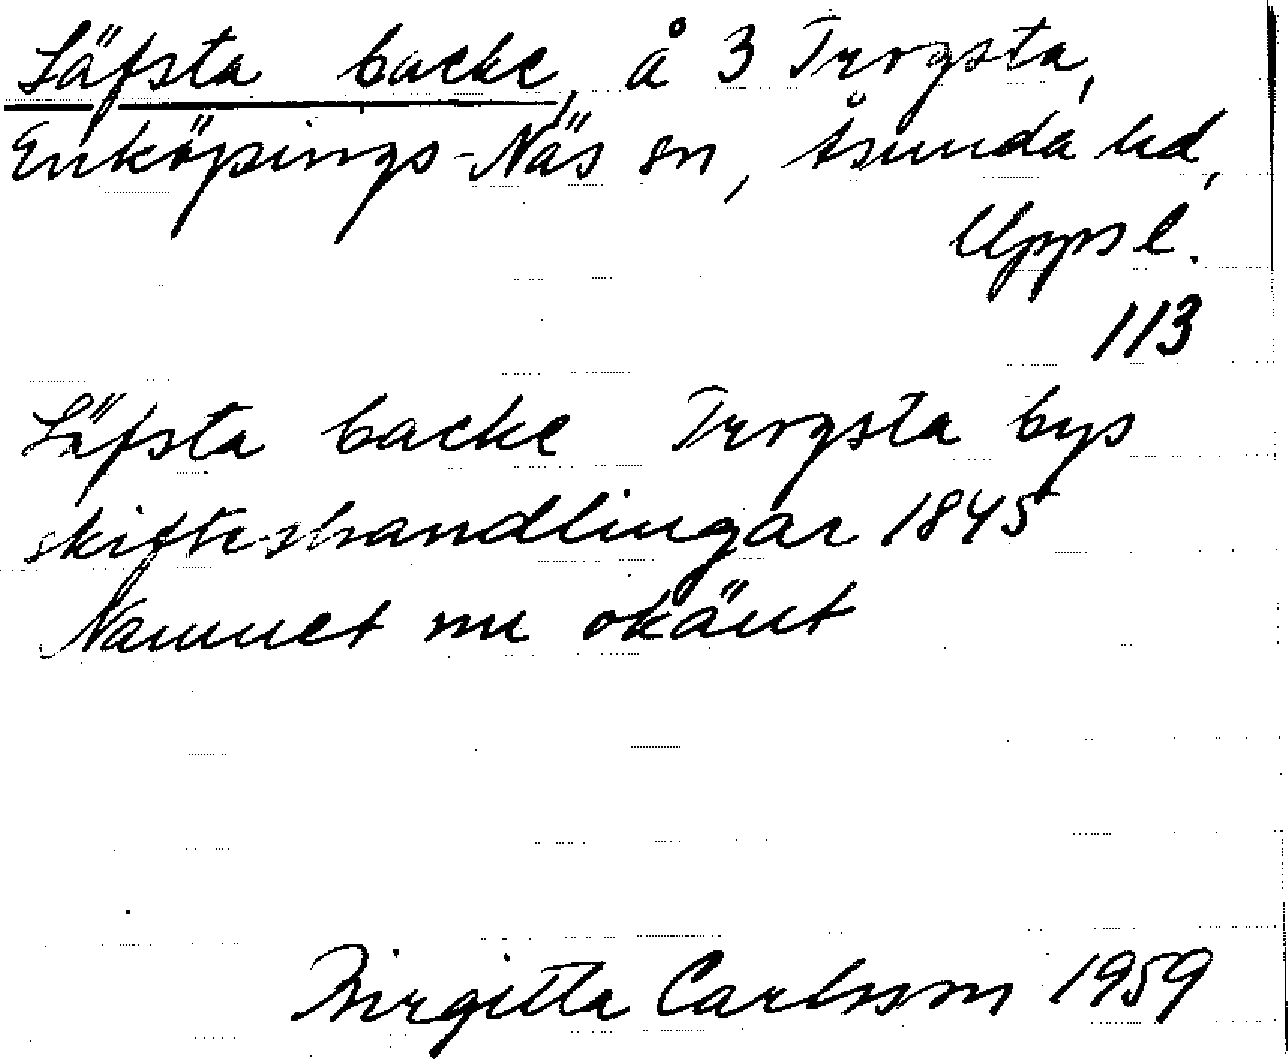 Säfsta backe, å 3 Trögsta,
Enköpings-Näs sn, Åsunda hd,
Upps l.
113
Säfsta backe Trögsta bys
skifteshandlingar 1845
Namnet nu okänt
Birgitta Carlsson 1959